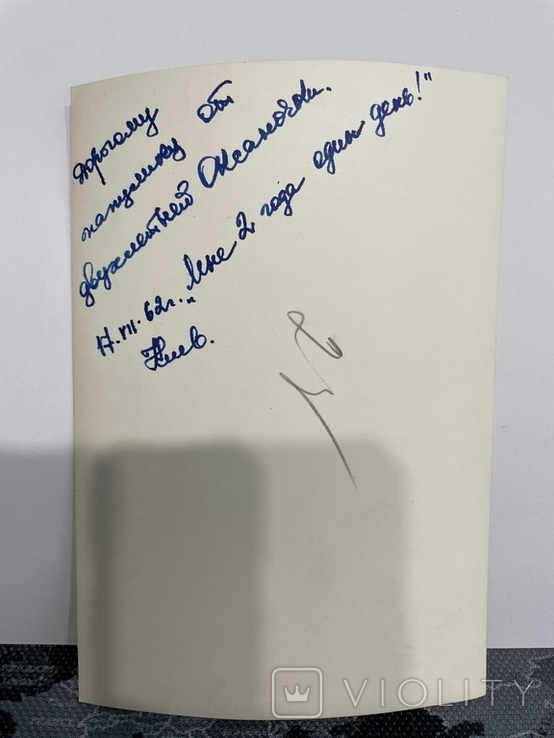 дорогому
папулику от
двухлетней Оксаночки.
17.VII.62г. „Мне 2 года один день!"
Киев.
VIOLITY